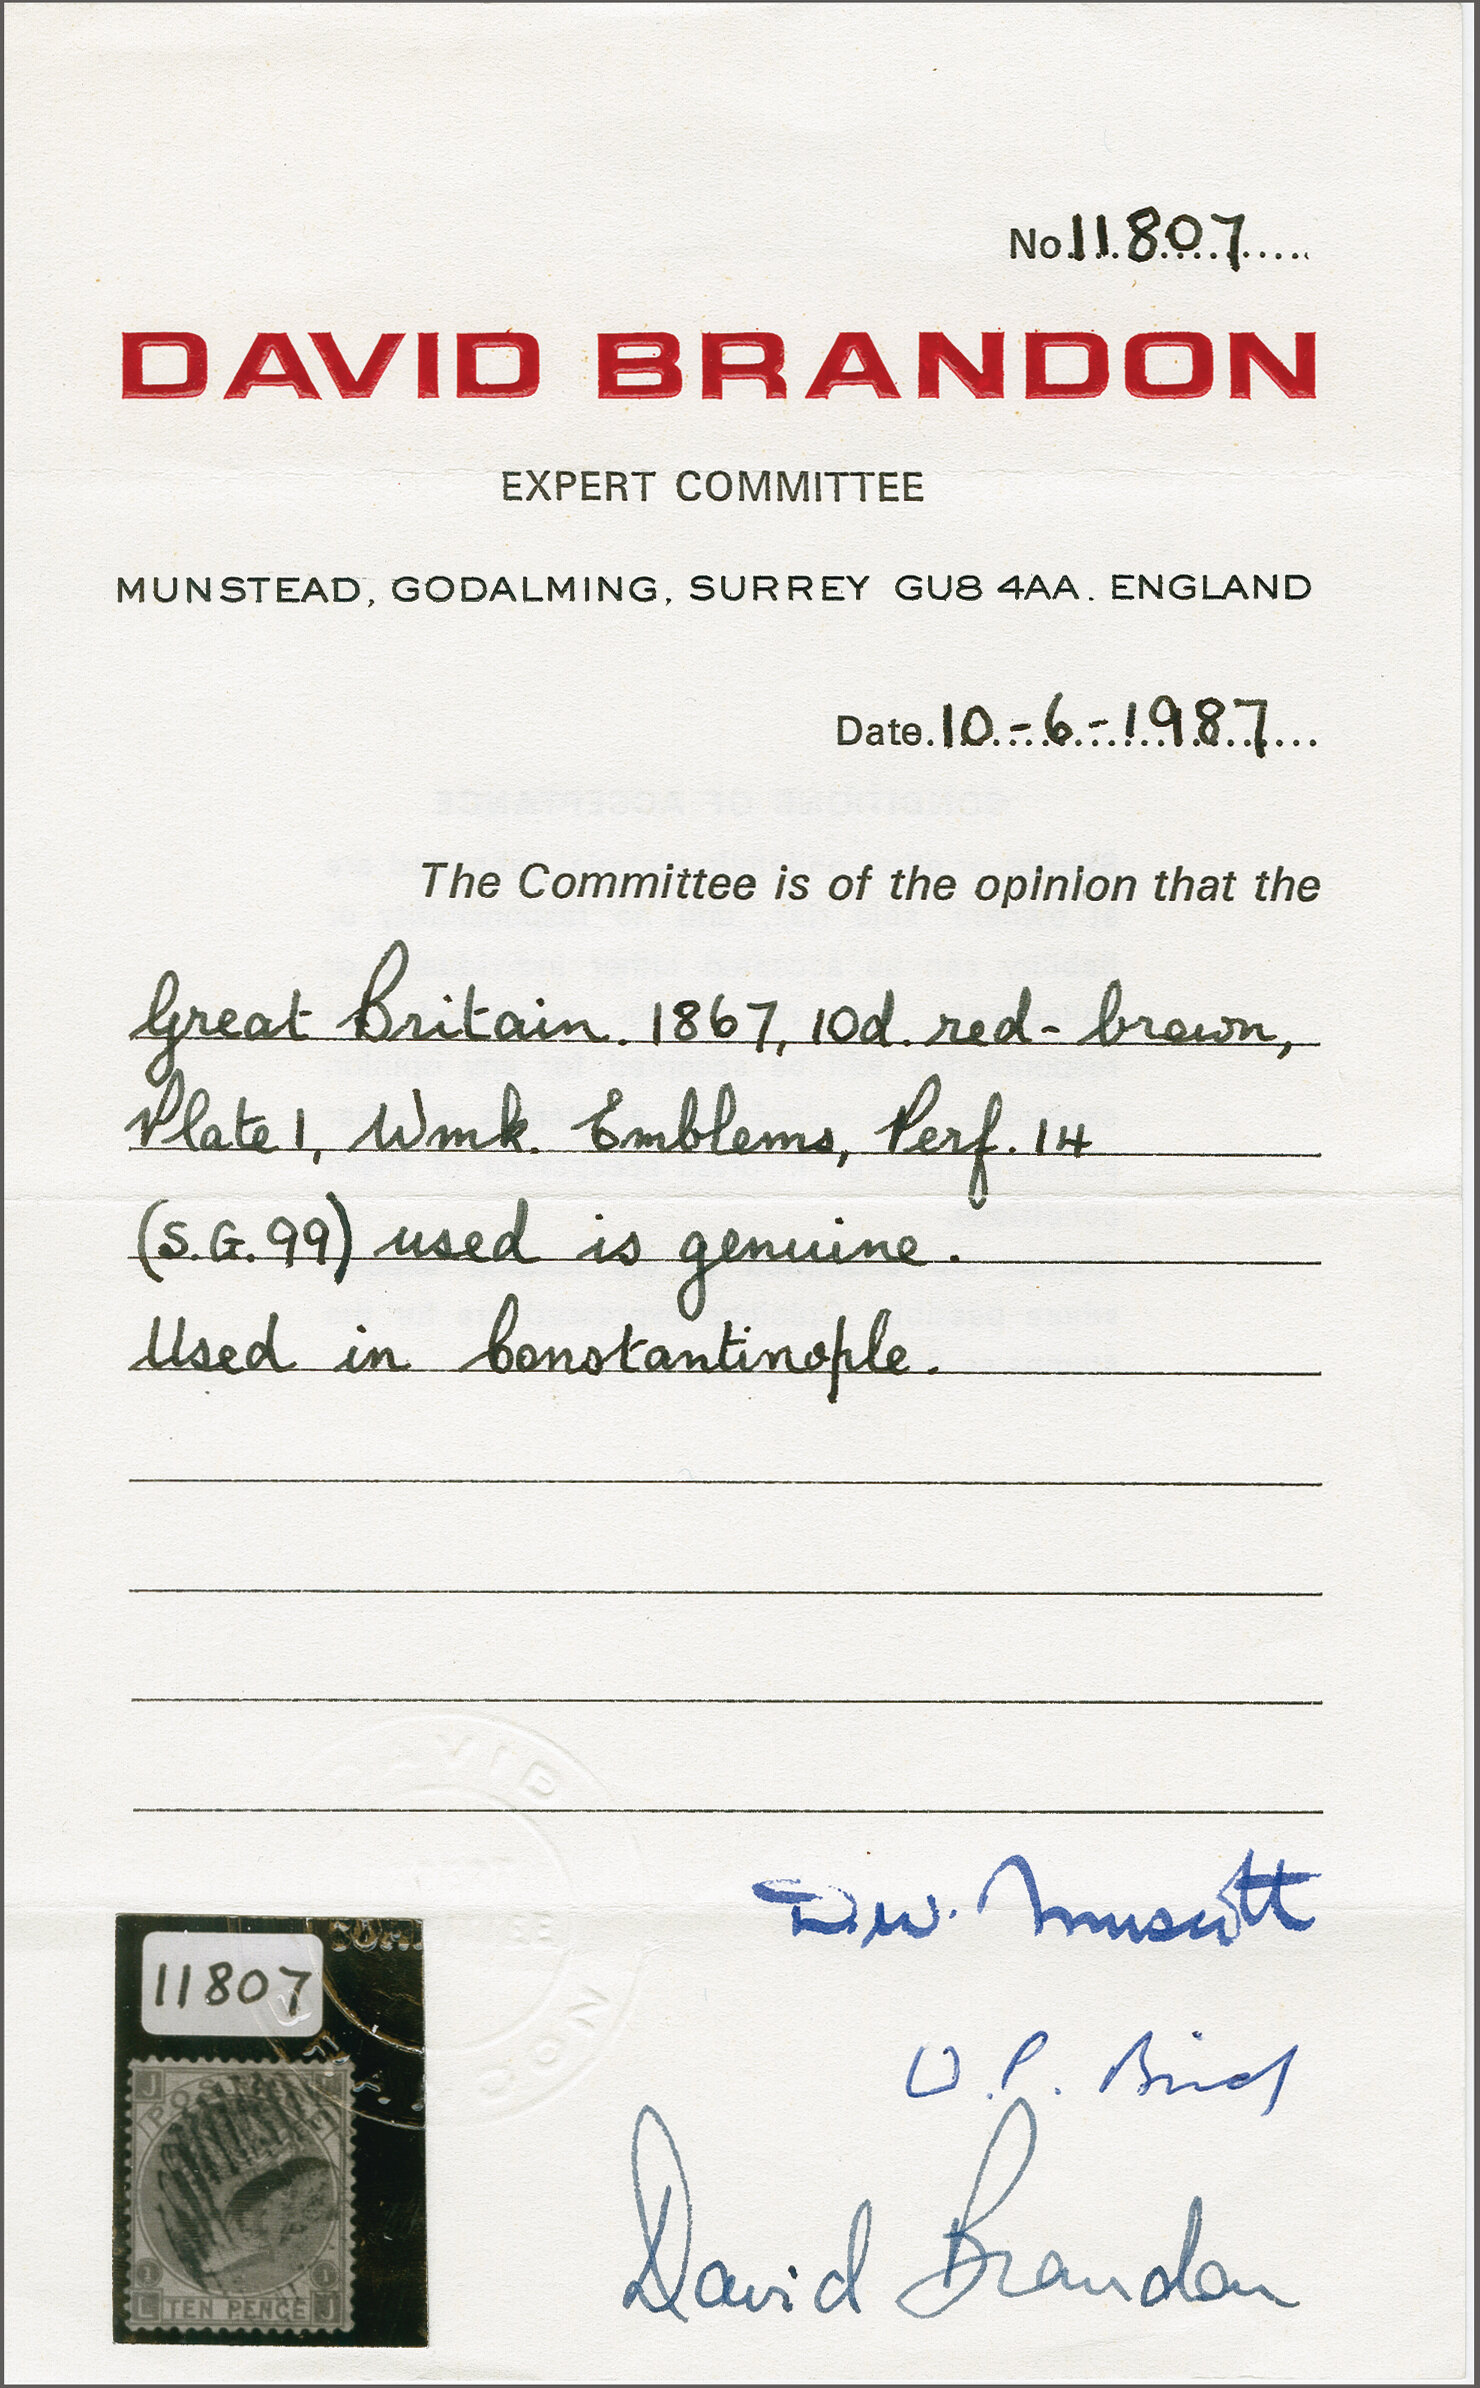 No. 11807
DAVID BRANDON
EXPERT COMMITTEE
MUNSTEAD, GODALMING, SURREY GU8 4AA. ENGLAND
Date. 10-6-1987
The Committee is of the opinion that the
Great Britain. 1867, 10d. red-brown,
Plate 1, Wmk. Emblems, Perf. 14
(S.G. 99) used is genuine.
Used in Constantinople.
D.W. Muscott
O.P. Bird
David Brandon
11807
J
1 1
L TEN PENCE J